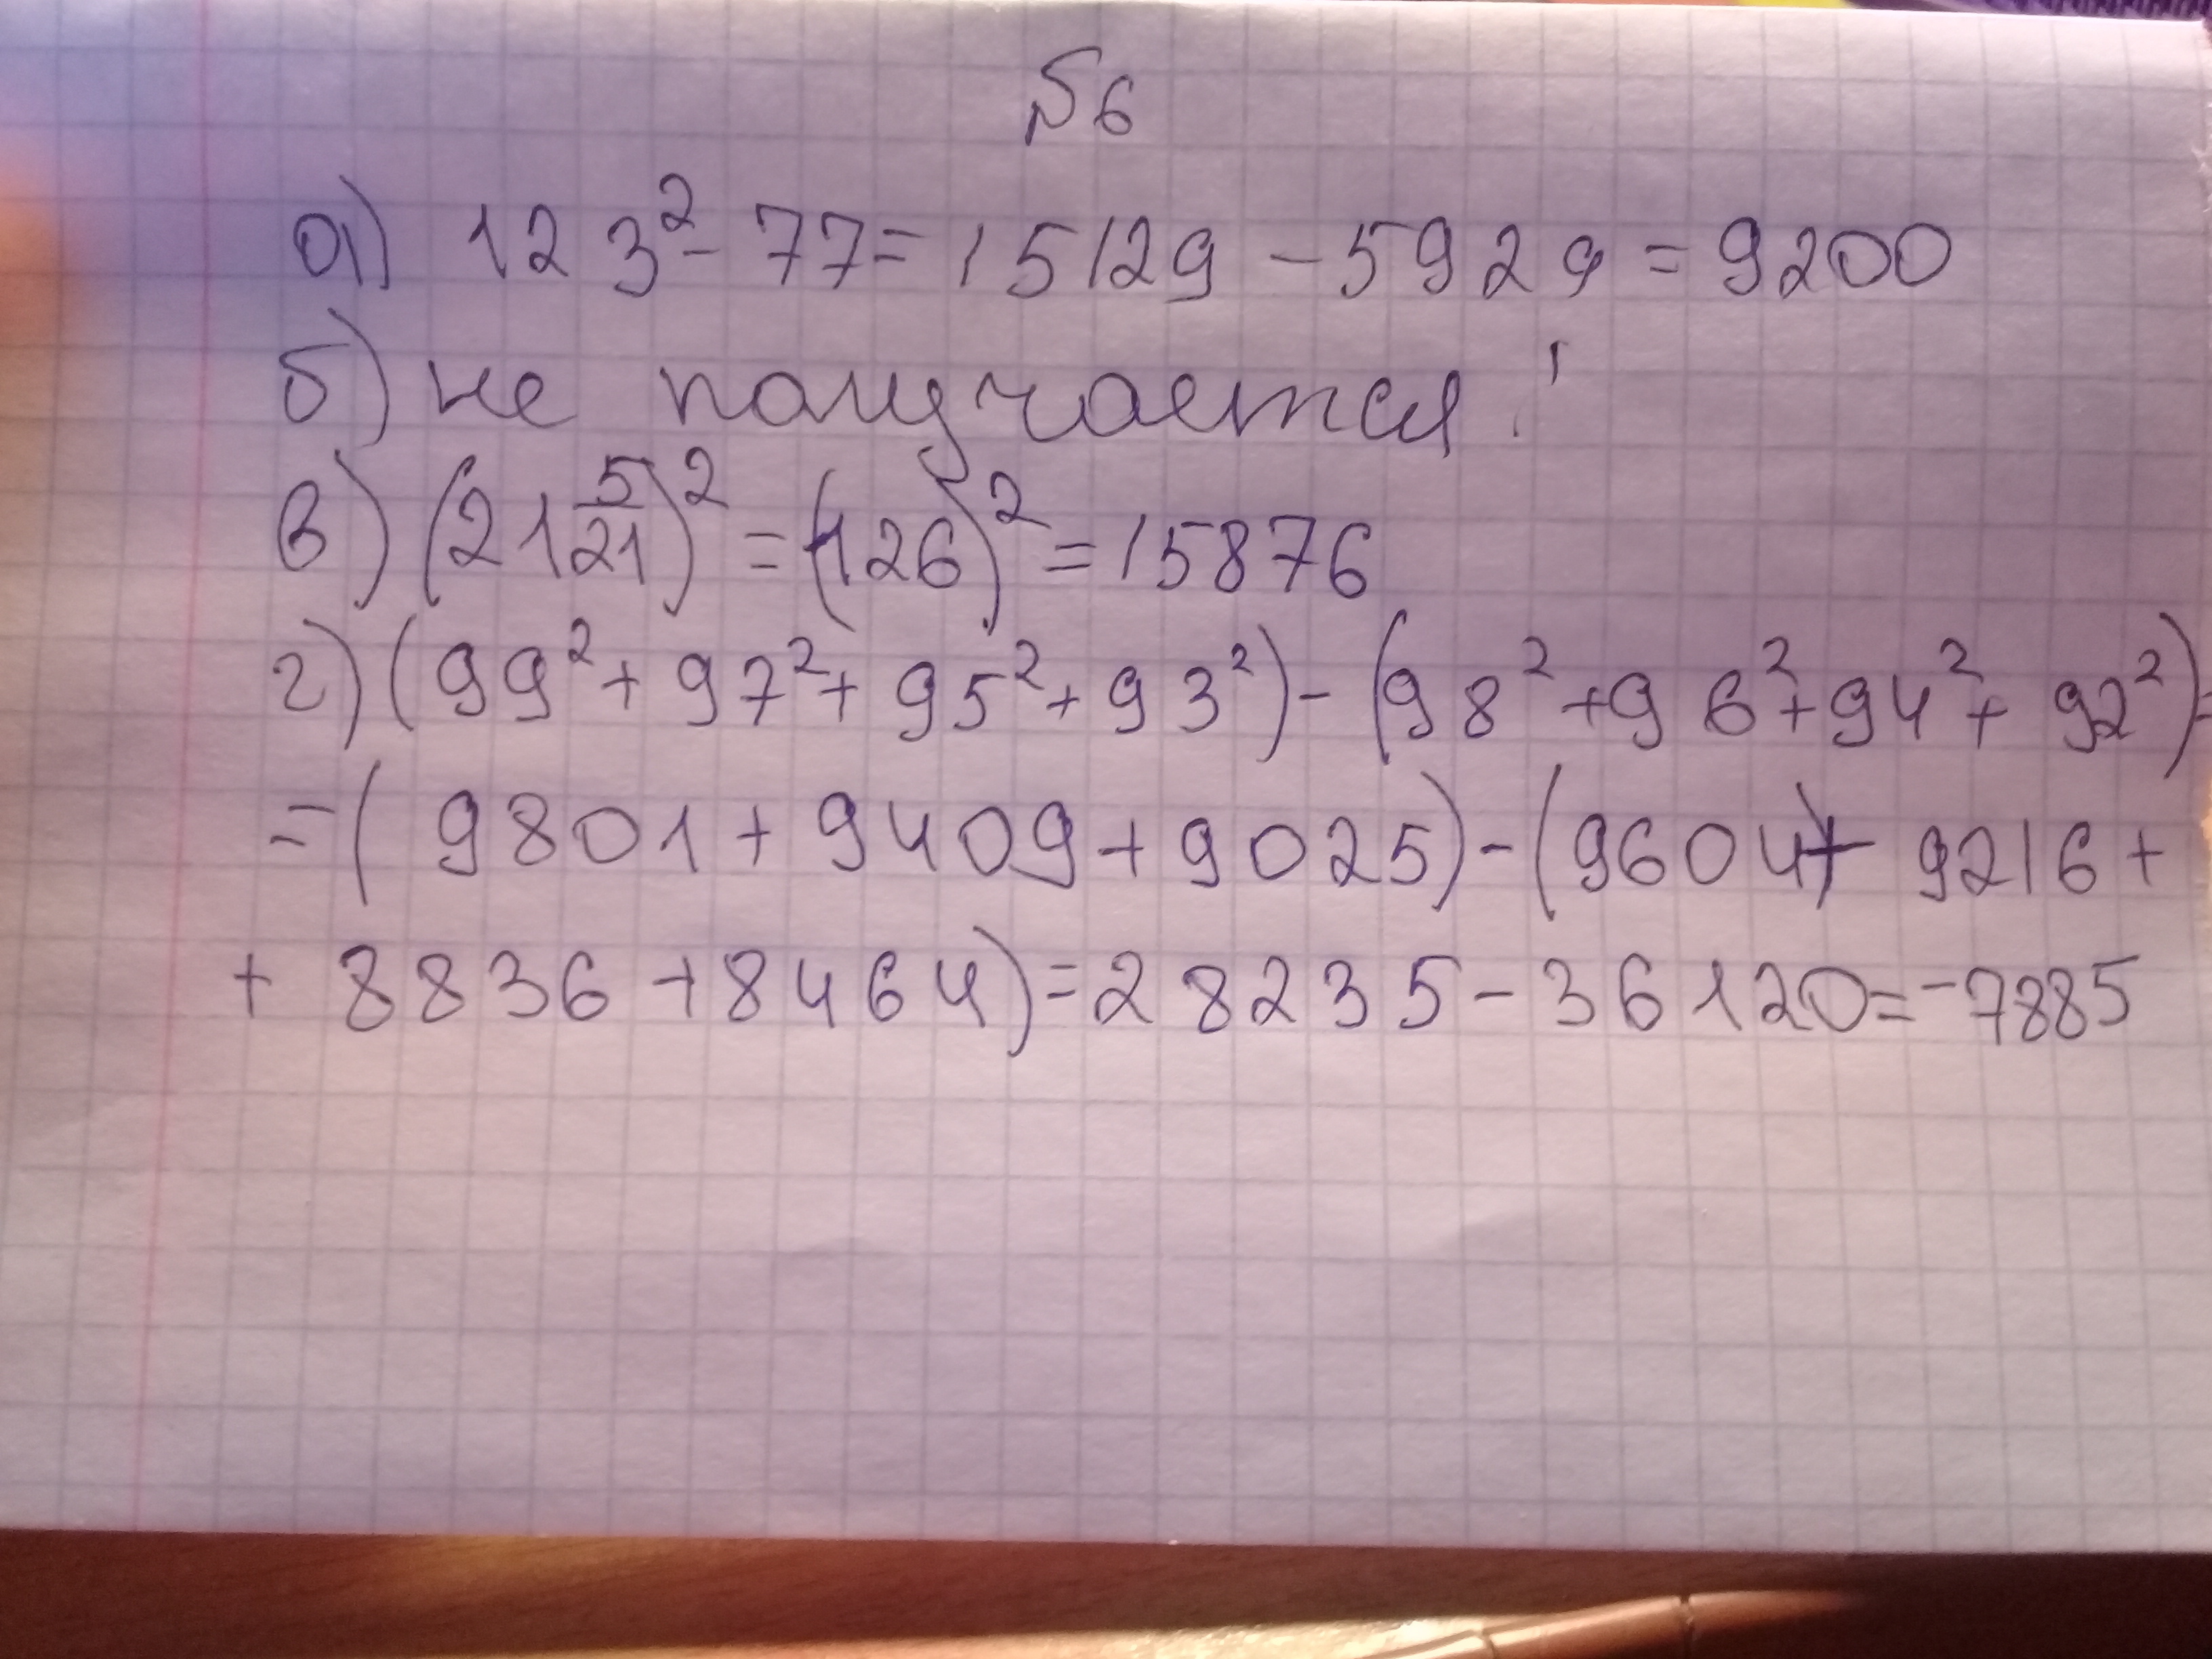 №6
а) 123² - 77 = 15129 - 5929 = 9200
б) не получается!
в) (21 5/21)² = (126)² = 15876
г) (99² + 97² + 95² + 93²) - (98² + 96² + 94² + 92²) =
= (9801 + 9409 + 9025) - (9604 + 9216 +
+ 8836 + 8464) = 28235 - 36120 = -7885